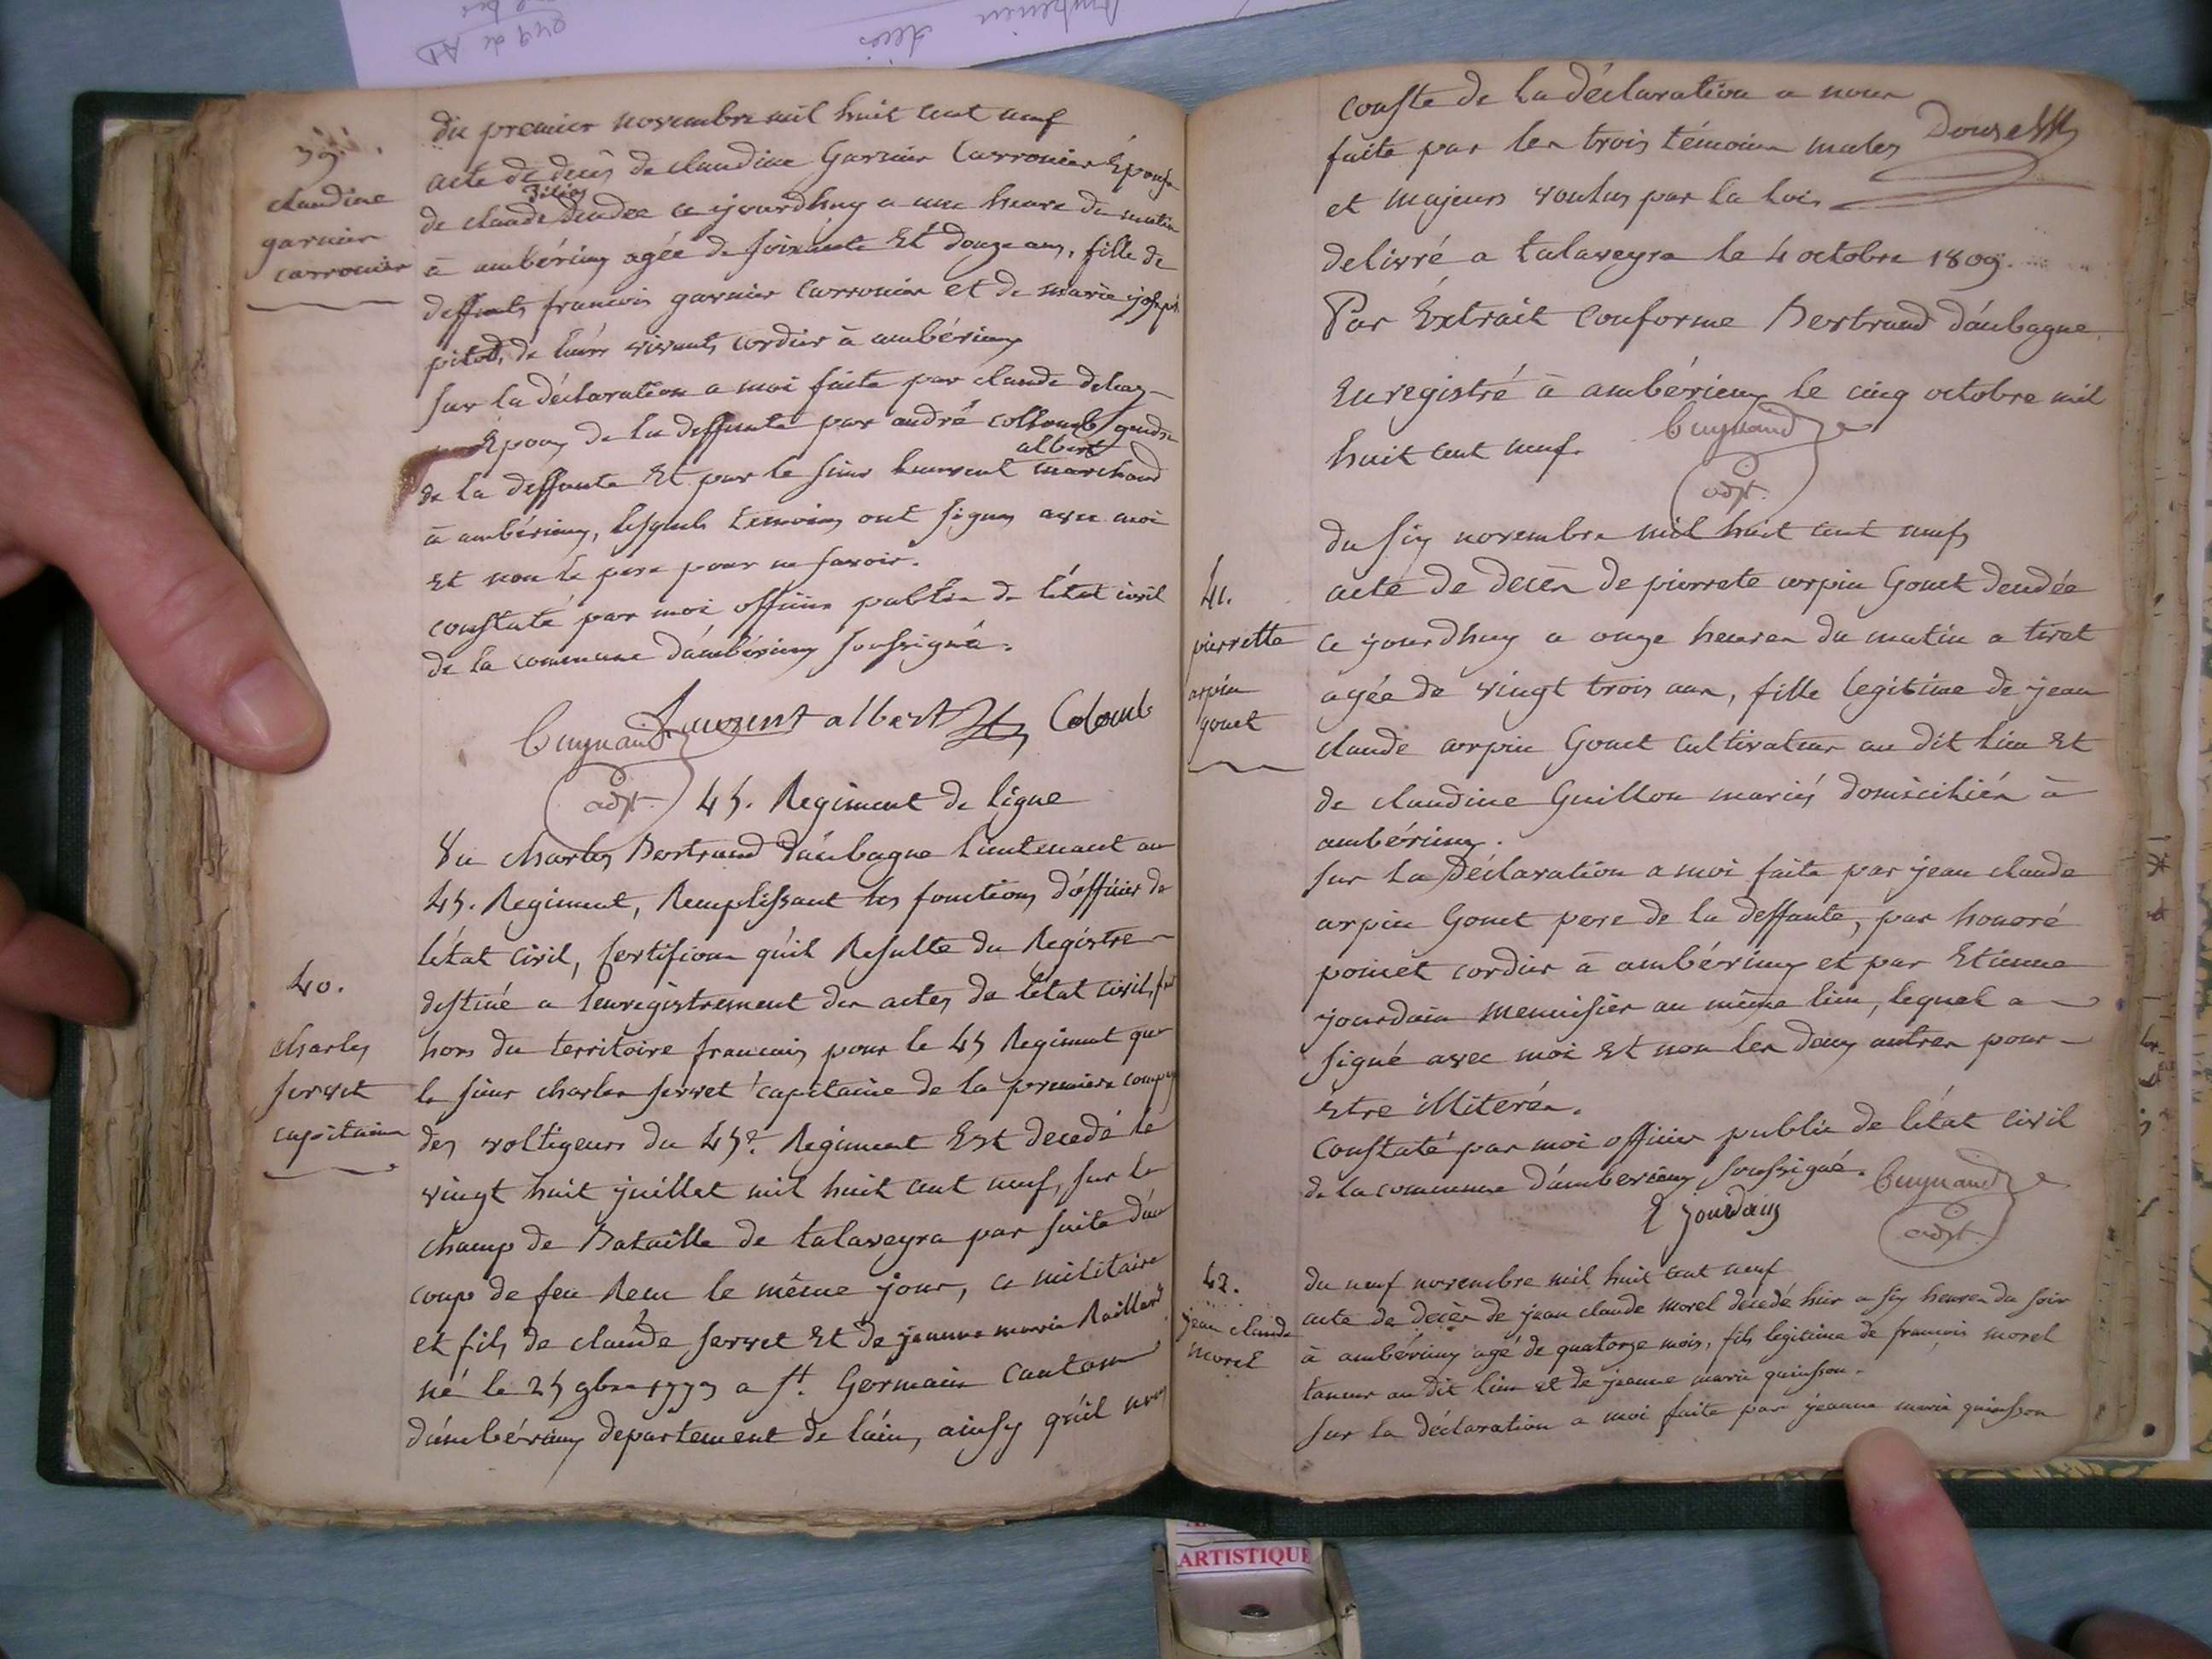 39.
claudine
garnier
carronier
du premier novembre mil huit cent neuf
acte de decès de claudine Garnier Carronier Épouse
de claude dendée ce jourdhuy a une heure du matin
à ambérieuy agée de soixante Et douze ans, fille de
deffunts francois garnier Carronier et de marie joseph
pitod, de leurs vivants cordier à ambérieuy
sur la déclaration a moi faite par claude
Épouy de la deffunte par andré collomb gendre
albert
de la deffunte Et par le sieur laurent marchand
à ambérieuy, lesquels temoins ont signes avec moi
Et non le pere pour ne savoir.
constaté par moi officier public de létat civil
de la commune dámbérieuy soussigné.
Cuynaud Laurent albert Colomb
adjt.
45. Regiment de ligne
40.
charles
servet
capitaine
Nu charles Bertrand dáubagne lieutenant au
45. Regiment, Remplissant les fonctions dófficier de
létat civil, Certifions qúil Resulte du Registre
destiné a lenregistrement des actes de létat civil, fait
hors du territoire francais pour le 45 Regiment que
le sieur charles servet capitaine de la premiere compe
des voltigeurs du 45e. Regiment Est decedé le
vingt huit juillet mil huit cent neuf, sur le
champ de Bataille de talaveyra par suite dún
coup de feu Recu le même jour, ce militaire
et fils de claude servet Et de jeanne marie Raillard
né le 25 gbre 1773 a st. Germain Canton
dámbérieuy departement de láin, ainsy qúil nous
conste de la déclaration a nous
faite par les trois témoins males Douzel
et majeurs voulus par la loi.
delivré a talaveyra le 4 octobre 1809.
Par Extrait Conforme Bertrand dáubagne
Enregistré à ambérieuy le cinq octobre mil
huit cent neuf. Cuynaud
adjt.
41.
pierrette
arpin
gouet
du siy novembre mil huit cent neuf
acte de decès de pierrete arpin Gouet dendée
ce jourdhuy a onze heures du matin a tiret
agée de vingt trois ans, fille legitime de jean
claude arpin Gouet cultivateur au dit lieu Et
de claudine Guillon mariés domiciliés à
ambérieuy.
sur la Déclaration a moi faite par jean claude
arpin Gouet pere de la deffunte, par honoré
poncet cordier à ambérieuy et par Etienne
jourdain menuisier au même lieu, lequel a
signé avec moi Et non les deuy autres pour
Etre illiterés.
Constaté par moi officier public de létat civil
de la commune dámberieuy soussigné. Cuynaud
E jourdain adjt.
42.
jean claude
morel
du neuf novembre mil huit cent neuf
acte de decès de jean claude morel decedé hier a siy heures du soir
à ambérieuy agé de quatorze mois, fils legitime de francois morel
taneur au dit lieu et de jeanne marie quinson.
sur la déclaration a moi faite par jeanne marie quinson
ARTISTIQUE